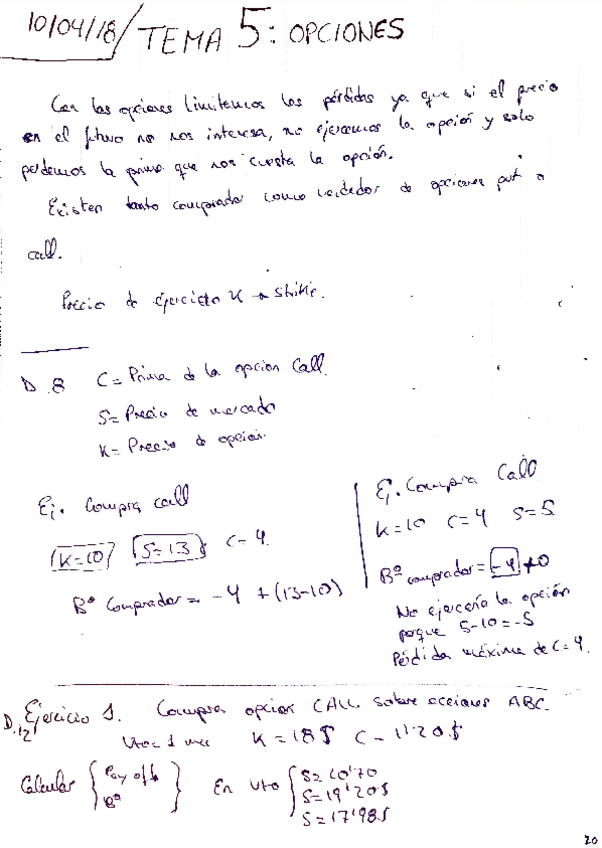 10/04/18/ TEMA 5: OPCIONES
Con las opciones limitamos las pérdidas ya que si el precio
en el futuro no nos interesa, no ejercemos la opción y solo
perdemos la prima que nos cuesta la opción.
Existen tanto comprador como vendedor de opciones put o
call.
Precio de ejercicio K → strike.
D.8 C = Prima de la opcion Call
S = Precio de mercado
K = Precio de opción.
Ej. Compra call
K=10 S=13 C=4
Bº Comprador = -4 + (13-10)
Ej. Compra Call
K=10 C=4 S=5
Bº comprador = -4+0
No ejercería la opción
porque 5-10=-5
Pérdida máxima de C=4.
D.12 Ejercicio 1. Compra opcion CALL sobre acciones ABC.
Vto = 1 mes K = 18$ C = 1'20$
Calcular { Pay off Bº } En vto { S=20'70
S=19'20$
S=17'98$
20